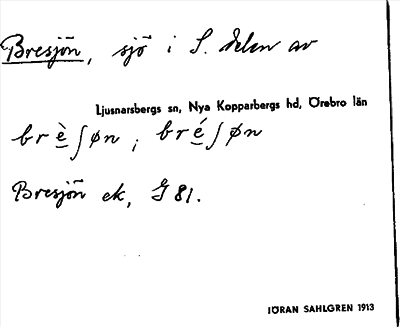 Bresjön, sjö i S. delen av
Ljusnarsbergs sn, Nya Kopparbergs hd, Örebro län
brè̲ʃøn ; bré̲ʃøn
Bresjön ek, G 81.
JÖRAN SAHLGREN 1913